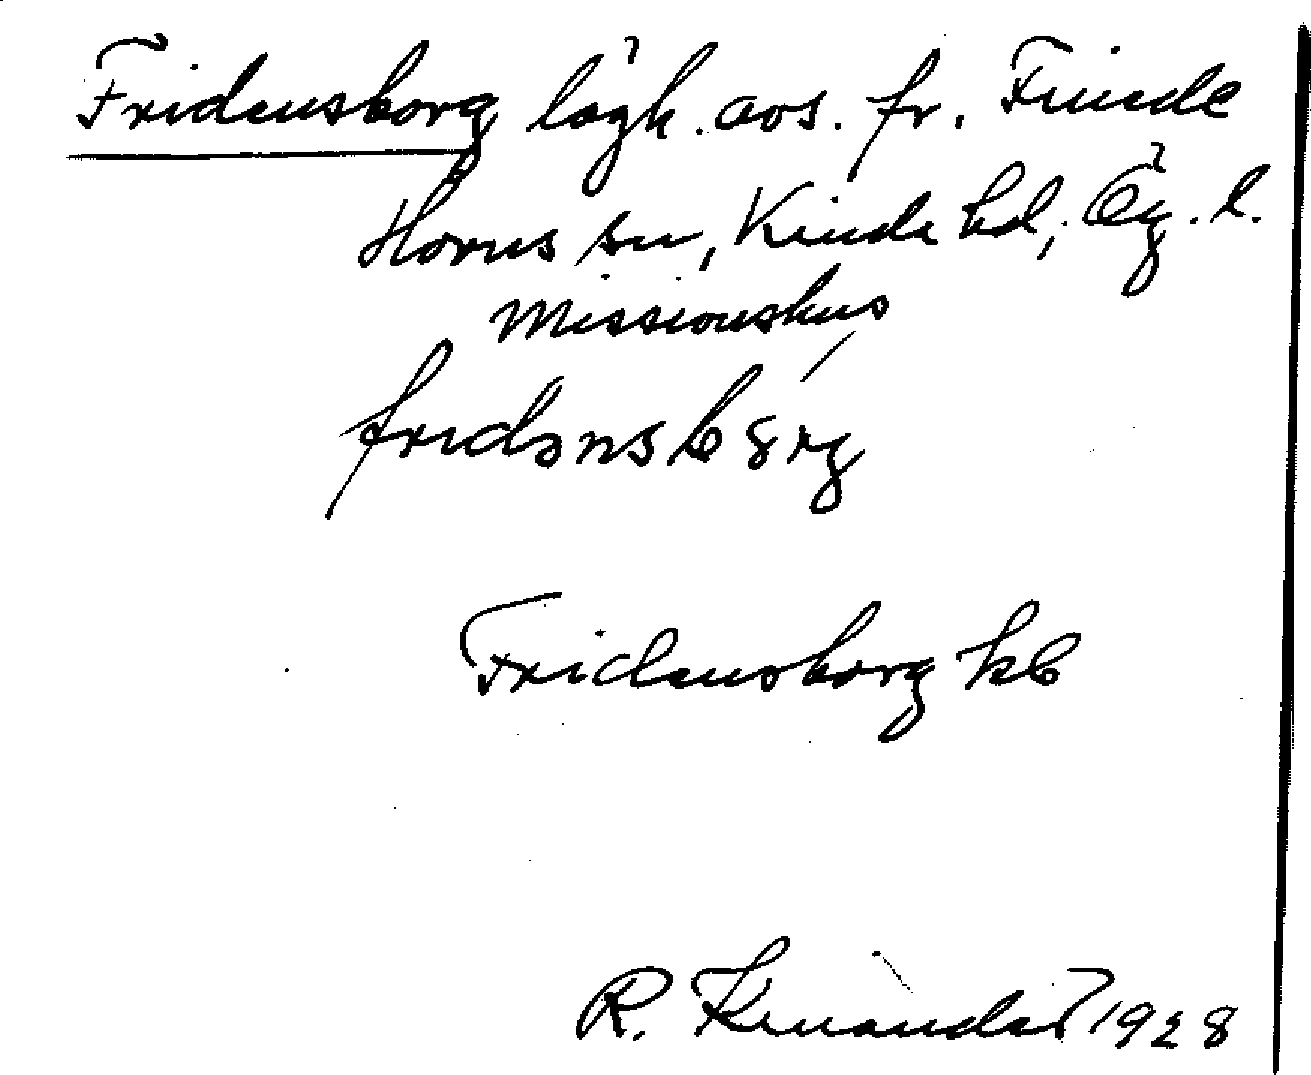 Fridensborg lägh. avs. fr. Finede
Horns sn, Kinda hd, Ög. l.
Missionshus
fridənsbɷrg
Fridensborg kb
R. 1928